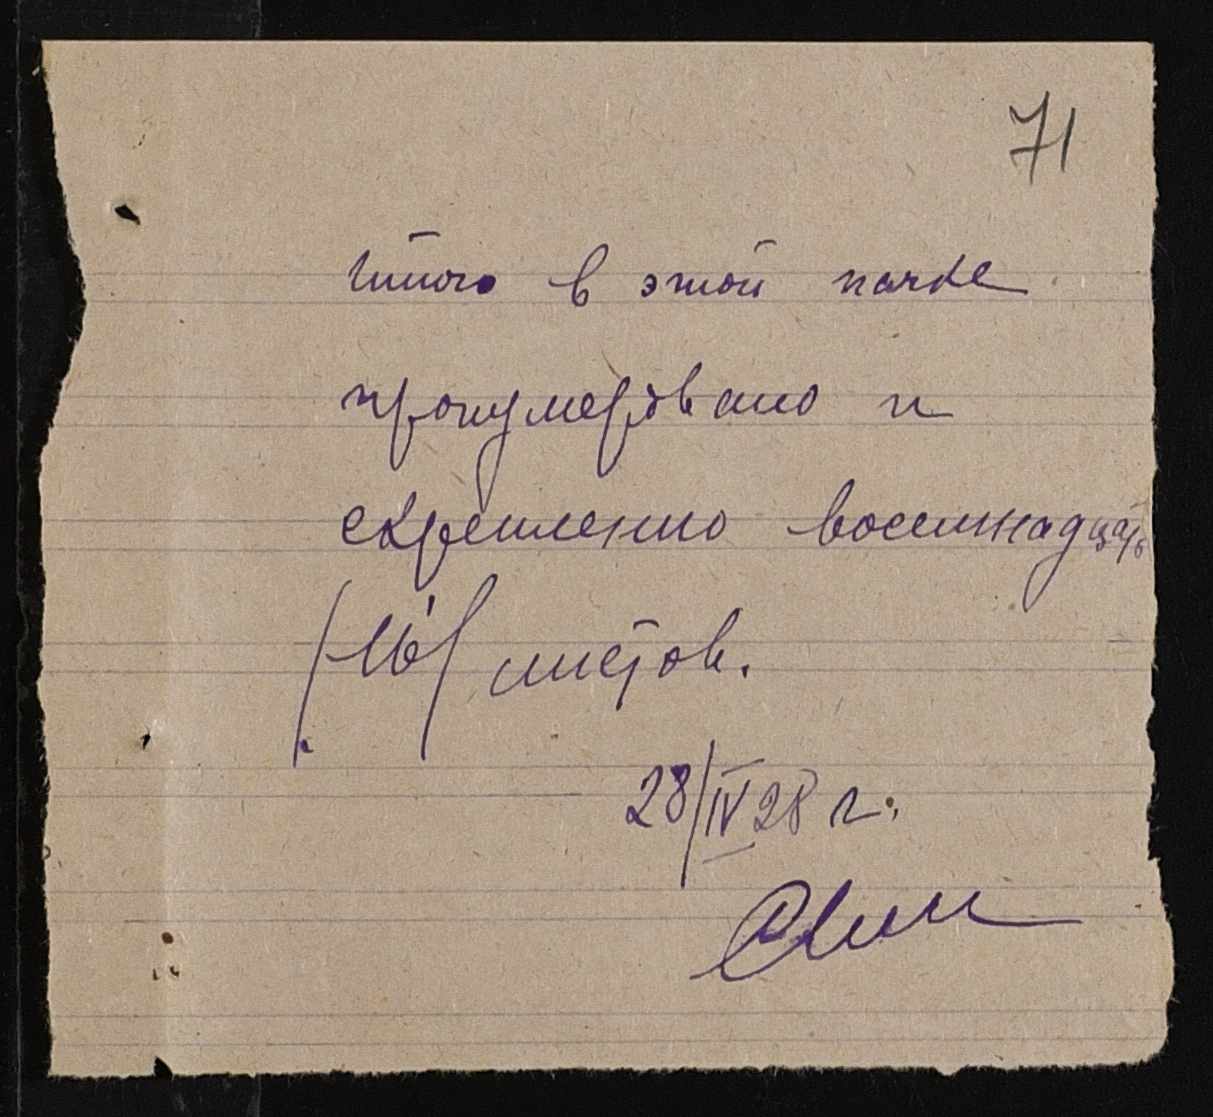 71
Итого в этой пачке
пронумеровано и
скреплено восемнадцать
/18/ листов.
28/IV 28 г.